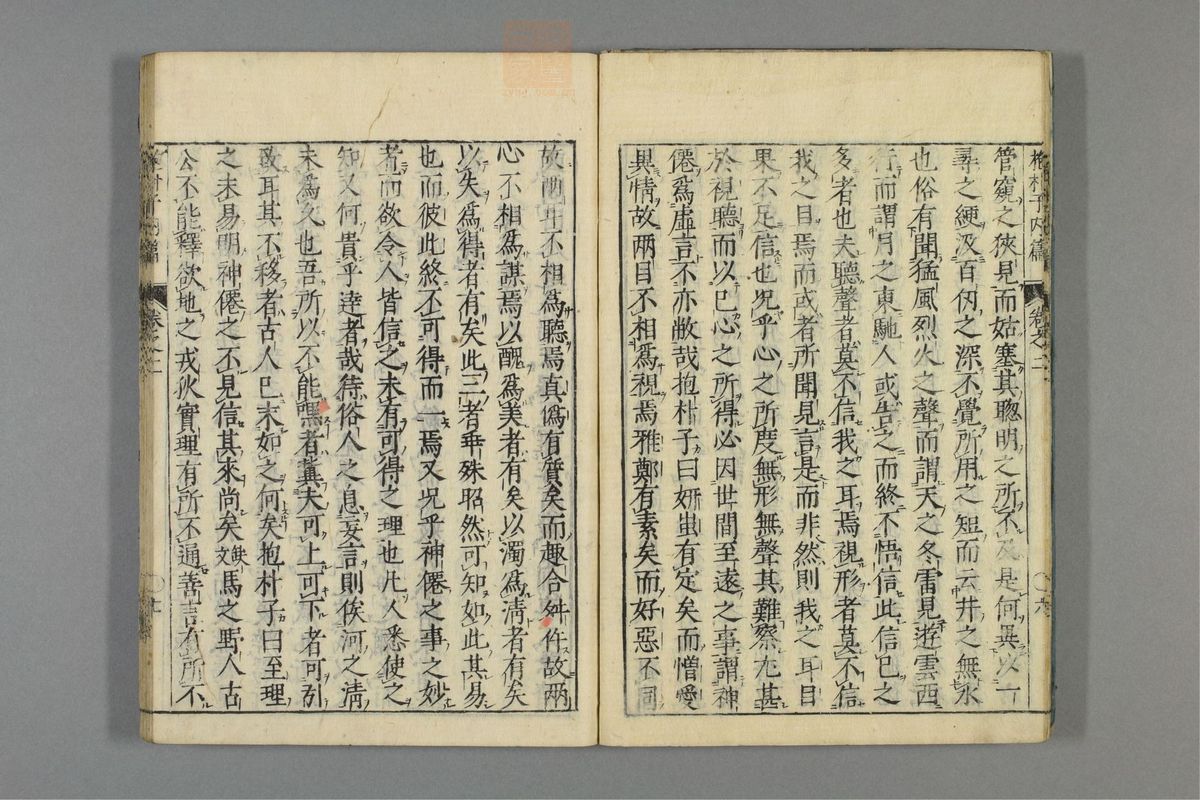 抱朴子內篇 卷之二 〇九
管窺之狹見而姑塞其聰明之所不及是何異以一
尋之綆汲百仞之深不覺所用之短而云井之無水
也俗有聞猛風烈火之聲而謂天之冬雷見遊雲西
行而謂月之東馳人或告之而終不悟信此信己之
多者也夫聽聲者莫不信我之耳焉視形者莫不信
我之目焉而或者所聞見言是而非然則我之耳目
果不足信也况乎心之所度無形無聲其難察尤甚
於視聽而以己心之所得必因世間至遠之事謂神
僊爲虛言不亦敝哉抱朴子曰妍蚩有定矣而憎愛
異情故兩目不相爲視焉雅鄭有素矣而好惡不同
故兩耳不相爲聽焉真僞有質矣而趣合舛忤故兩
心不相爲謀焉以醜爲美者有矣以濁爲淸者有矣
以失爲得者有矣此三者乖殊昭然可知如此其易
也而彼此終不可得而一焉又况乎神僊之事之妙
者而欲令人皆信之未有可得之理也凡人悉使之
知又何貴乎達者哉待俗人之息妄言則俟河之淸
未爲久也吾所以不能嘿者冀夫可上可下者可引
致耳其不移者古人已末如之何矣抱朴子曰至理
之未易明神僊之不見信其來尚矣文缺馬之野人古
公不能釋欲地之戎狄實理有所不通善言有所不
卷之二 〇十